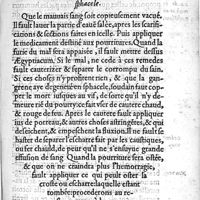 sphacele.
Que le mauuais sang soit copieusement vacué.
Il fault lauer la partie d'eaue salée, apres les scarifi-
cations & sections faites en icelle. Puis appliquer
le medicament destiné aux pourritures. Quand la
furie du mal sera appaisée, il fault mettre dessus
Ægyptiacum. Si le mal, ne cede à ces remedes
fault cauteriser & separer le corrompu du sain.
Si ces choses n'y profitent rien, & que la gan-
grene aye degeneré en sphacele, soudain faut cou-
per le mort iusques au vif, de sorte qu'il n'y de-
meure rié du pourry: ce fait vser de cautere chaud,
& rouge de feu. Apres empecher la fluxion aux
lieux de pourriture, posant autres astringés, & qui
deseichent, & empeschent la fluxion. Il ne fault se
haster de separer l'escharre fait par les caustiques,
ou fer chauld, de peur qu'il ne s'ensuyue grande
effusion de sang. Quand la pourriture sera ostée,
& que on ne craindra plus l'hemorragie,
fault appliquer ce qui peult oster la
crouste ou escharre laquelle estant
tombée: procederons au re-